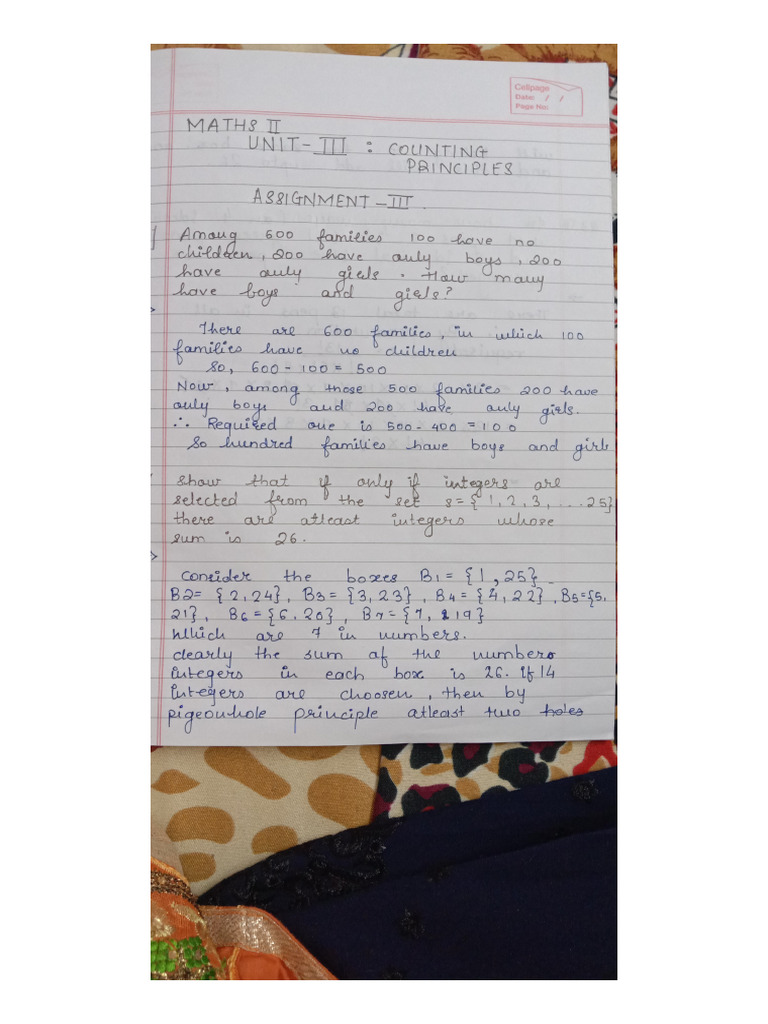 Cellpage
Date: / /
Page No:
MATHS II
UNIT-III : COUNTING
PRINCIPLES
ASSIGNMENT-III.
Among 600 families 100 have no
children, 200 have only boys, 200
have only girls. How many
have boys and girls?
There are 600 families, in which 100
families have no children
So, 600-100=500
Now, among those 500 families 200 have
only boys and 200 have only girls.
∴ Required one is 500-400=100
So hundred families have boys and girls
Show that if only if integers are
selected from the set s={1,2,3,...25}
there are atleast integers whose
sum is 26.
Consider the boxes B1={1,25}
B2={2,24}, B3={3,23}, B4={4,22}, B5={5,
21}, B6={6,20}, B7={7,19}
Which are 7 in numbers.
clearly the sum of the numbers
integers in each box is 26. if 14
integers are choosen, then by
pigeonhole principle atleast two holes